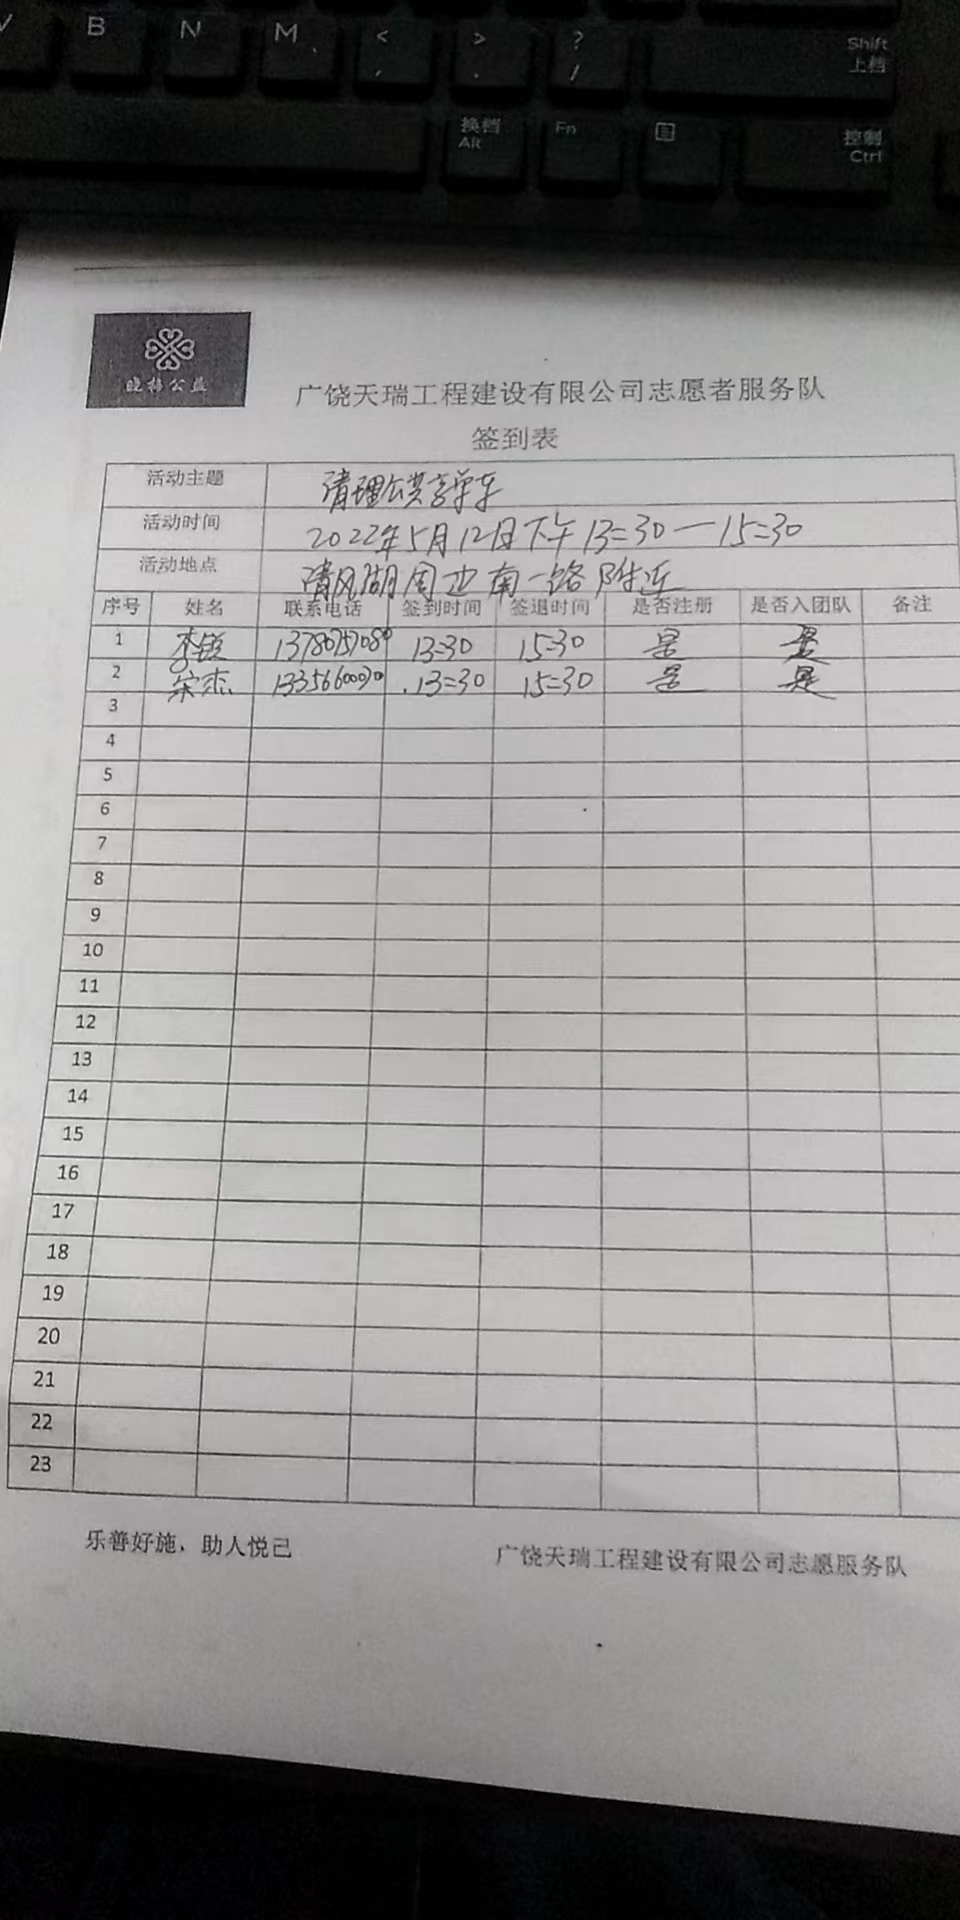 V B N M < > ? Shift
, . / 上档
换档 Fn 控制
Alt Ctrl
晓梅公益
广饶天瑞工程建设有限公司志愿者服务队
签到表
活动主题 清理公共享单车
活动时间 2022年5月12日下午13:30—15:30
活动地点 清风湖周边南一路附近
序号 姓名 联系电话 签到时间 签退时间 是否注册 是否入团队 备注
1 李 13:30 15:30 是 是
2 宋杰 13:30 15:30 是 是
3
4
5
6
7
8
9
10
11
12
13
14
15
16
17
18
19
20
21
22
23
乐善好施，助人悦己
广饶天瑞工程建设有限公司志愿服务队